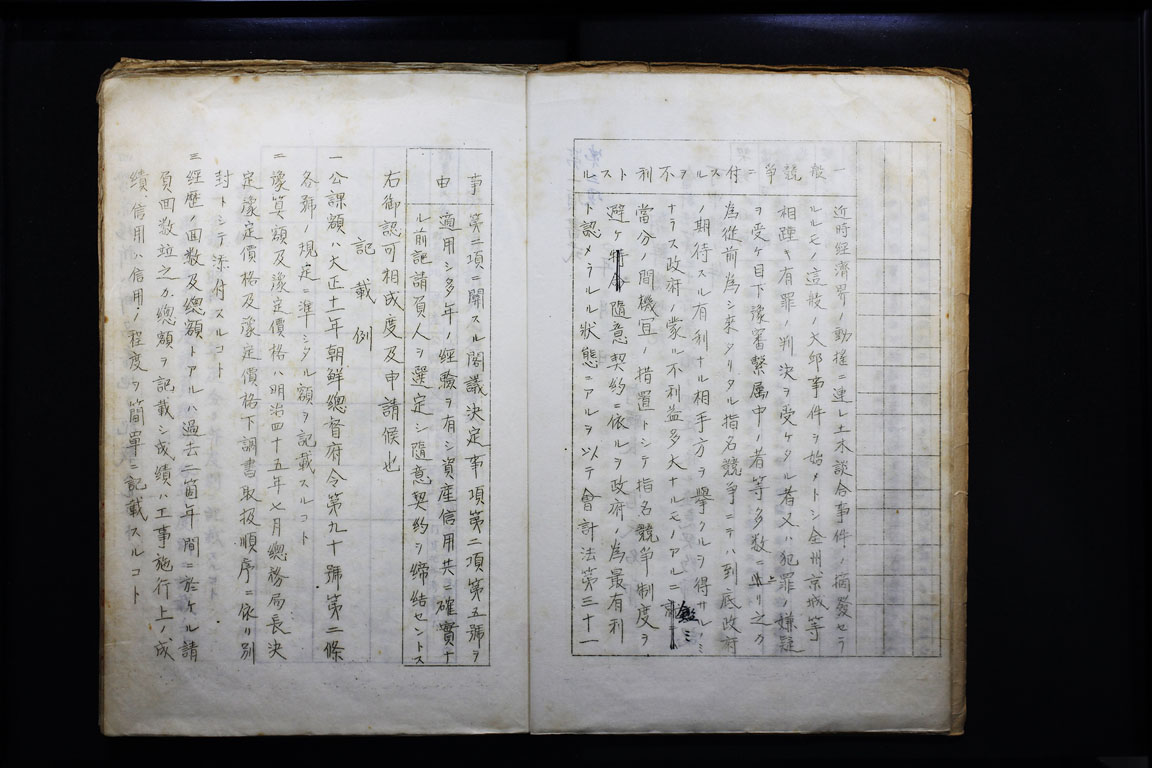 一般競争ニ付スルヲ不利トスル
近時経済界ノ動揺ニ連レ土木談合事件ノ摘発セラ
ルルモノ這般ノ大邱事件ヲ始メトシ全州、京城等
相踵キ有罪ノ判決ヲ受ケタル者又ハ犯罪ノ嫌疑
ヲ受ケ目下豫審繫属中ノ者等多数ニ上リ之カ
為従前為シ来タリタル指名競争ニテハ到底政府
ノ期待スル有利ナル相手方ヲ擧クルヲ得サルノミ
ナラス政府ノ蒙ル不利益多大ナルモノアルニ鑑ミ
當分ノ間機宜ノ措置トシテ指名競争制度ヲ
避ケ随意契約ニ依ルヲ政府ノ為最有利
ト認メラルル状態ニアルヲ以テ會計法第三十一
事由
第二項ニ関スル閣議決定事項第二項第五號ヲ
適用シ多年ノ経驗ヲ有シ資産信用共ニ確實ナ
ル前記請負人ヲ選定シ随意契約ヲ締結セントス
右御認可相成度及申請候也
記載例
一公課額ハ大正十一年朝鮮總督府令第九十號第二條
各號ノ規定ニ準シタル額ヲ記載スルコト
二豫算額及豫定價格ハ明治四十五年七月總務局長決
定豫定價格及豫定價格下調書取扱順序ニ依リ別
封トシテ添付スルコト
三経歴ノ回数及總額トアルハ過去二箇年間ニ於ケル請
負回数竝之カ總額ヲ記載シ成績ハ工事施行上ノ成
績、信用ハ信用ノ程度ヲ簡單ニ記載スルコト